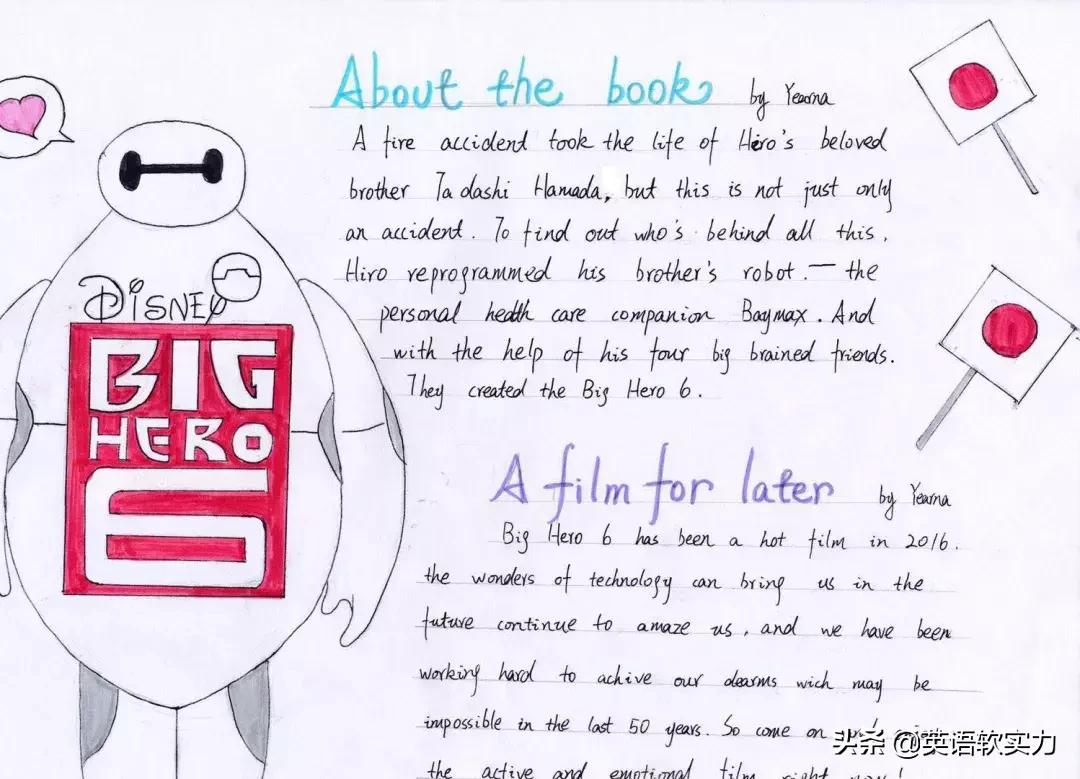 About the book by Yearna
A fire accidend took the life of Hiro's beloved
brother Tadashi Hamada, but this is not just only
an accident. To find out who's behind all this,
Hiro reprogrammed his brother's robot. — the
personal health care companion Baymax. And
with the help of his four big brained friends.
They created the Big Hero 6.
DISNEY
BIG
HERO
6
A film for later by Yearna
Big Hero 6 has been a hot film in 2016.
the wonders of technology can bring us in the
future continue to amaze us, and we have been
working hard to achive our dearms wich may be
impossible in the last 50 years. So come on
the active and emotional film right now!
头条 @英语软实力